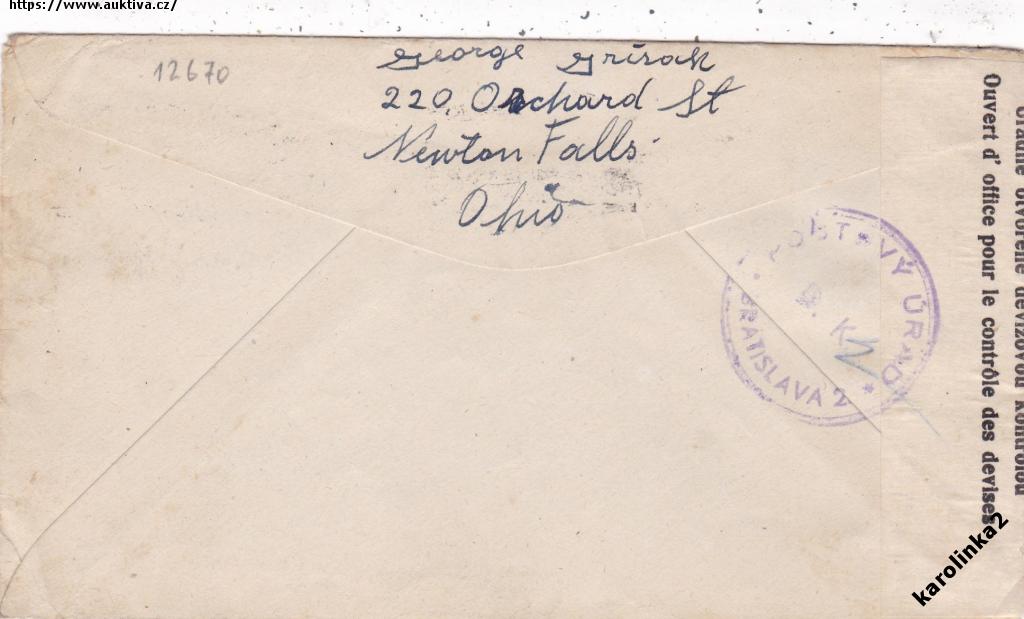 https://www.auktiva.cz/
12670
George Grisak
220, Orchard St
Newton Falls
Ohio
POŠTOVÝ ÚRAD
D. K.
BRATISLAVA 2 *
Úradne otvorené devízovou kontrolou
Ouvert d' office pour le contrôle des devises
karolinka2